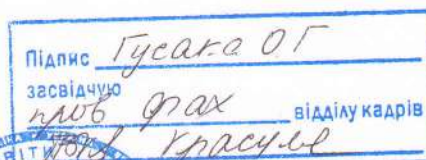 Підпис Гусака О Г
засвідчую
пров фах відділу кадрів
ВІТИ Красуля